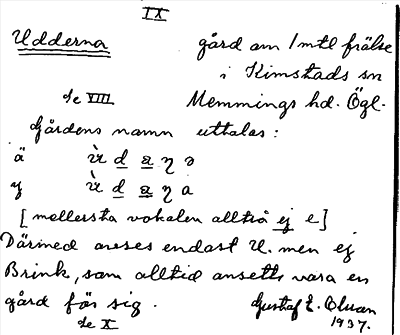 IX
Udderna gård om 1 mtl frälse
i Kimstads sn
se VIII Memmings hd. Ögl.
Gårdens namn uttalas:
ä ù d a η ə
y ù d a η a
[mellersta vokalen alltså ej e]
Därmed avses endast U. men ej
Brink, som alltid ansetts vara en
gård för sig. Gustaf E. Olsson
se X 1937.